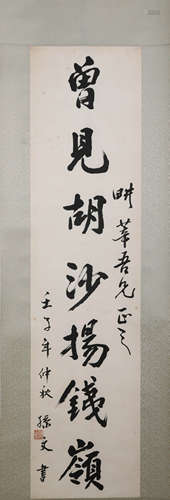 畊莘吾兄正之
曾見胡沙揚錢嶺
壬子年仲秋 孫文書